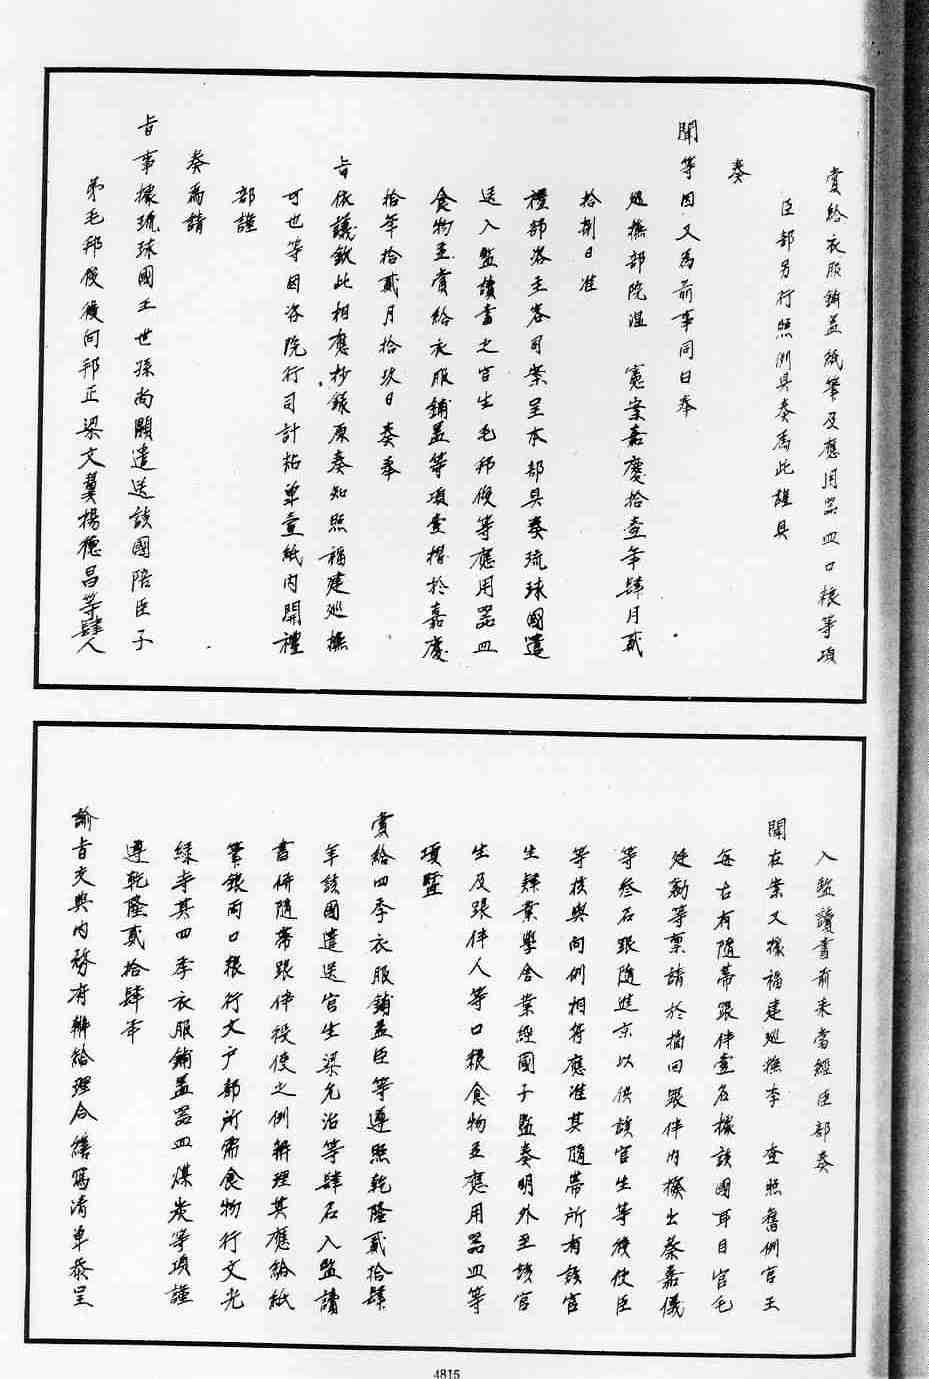 賞給衣服鋪蓋紙筆及應用器皿口糧等項
臣部另行照例具奏爲此謹具
奏
聞等因又爲前事同日奉
巡撫部院溫　憲案嘉慶拾壹年肆月貳
拾捌日准
禮部咨主客司案呈本部具奏琉球國遣
送入監讀書之官生毛邦俊等應用器皿
食物並賞給衣服鋪蓋等項壹摺於嘉慶
拾年拾貳月拾玖日奏奉
旨依議欽此相應抄錄原奏知照福建巡撫
可也等因咨院行司計粘單壹紙內開禮
部謹
奏爲請
旨事據琉球國王世孫尚灝遣送該國陪臣子
弟毛邦俊向邦正梁文翼楊德昌等肆人
入監讀書前來當經臣部奏
聞在案又據福建巡撫李　查照舊例官王
每古有隨帶跟伴壹名據該國耳目官毛
廷勷等稟請於摘回跟伴內撥出蔡嘉儀
等叄名跟隨進京以供該官生等役使臣
等核與向例相符應准其隨帶所有該官
生肄業學舍業經國子監奏明外至該官
生及跟伴人等口糧食物並應用器皿等
項暨
賞給四季衣服鋪蓋臣等遵照乾隆貳拾肆
年該國遣送官生梁允治等肆名入監讀
書併隨帶跟伴役使之例辦理其應給紙
筆銀兩口糧行文戶部所需食物行文光
祿寺其四季衣服鋪蓋器皿煤炭等項謹
遵乾隆貳拾肆年
諭旨交與內務府辦給理合繕寫清單恭呈
4815